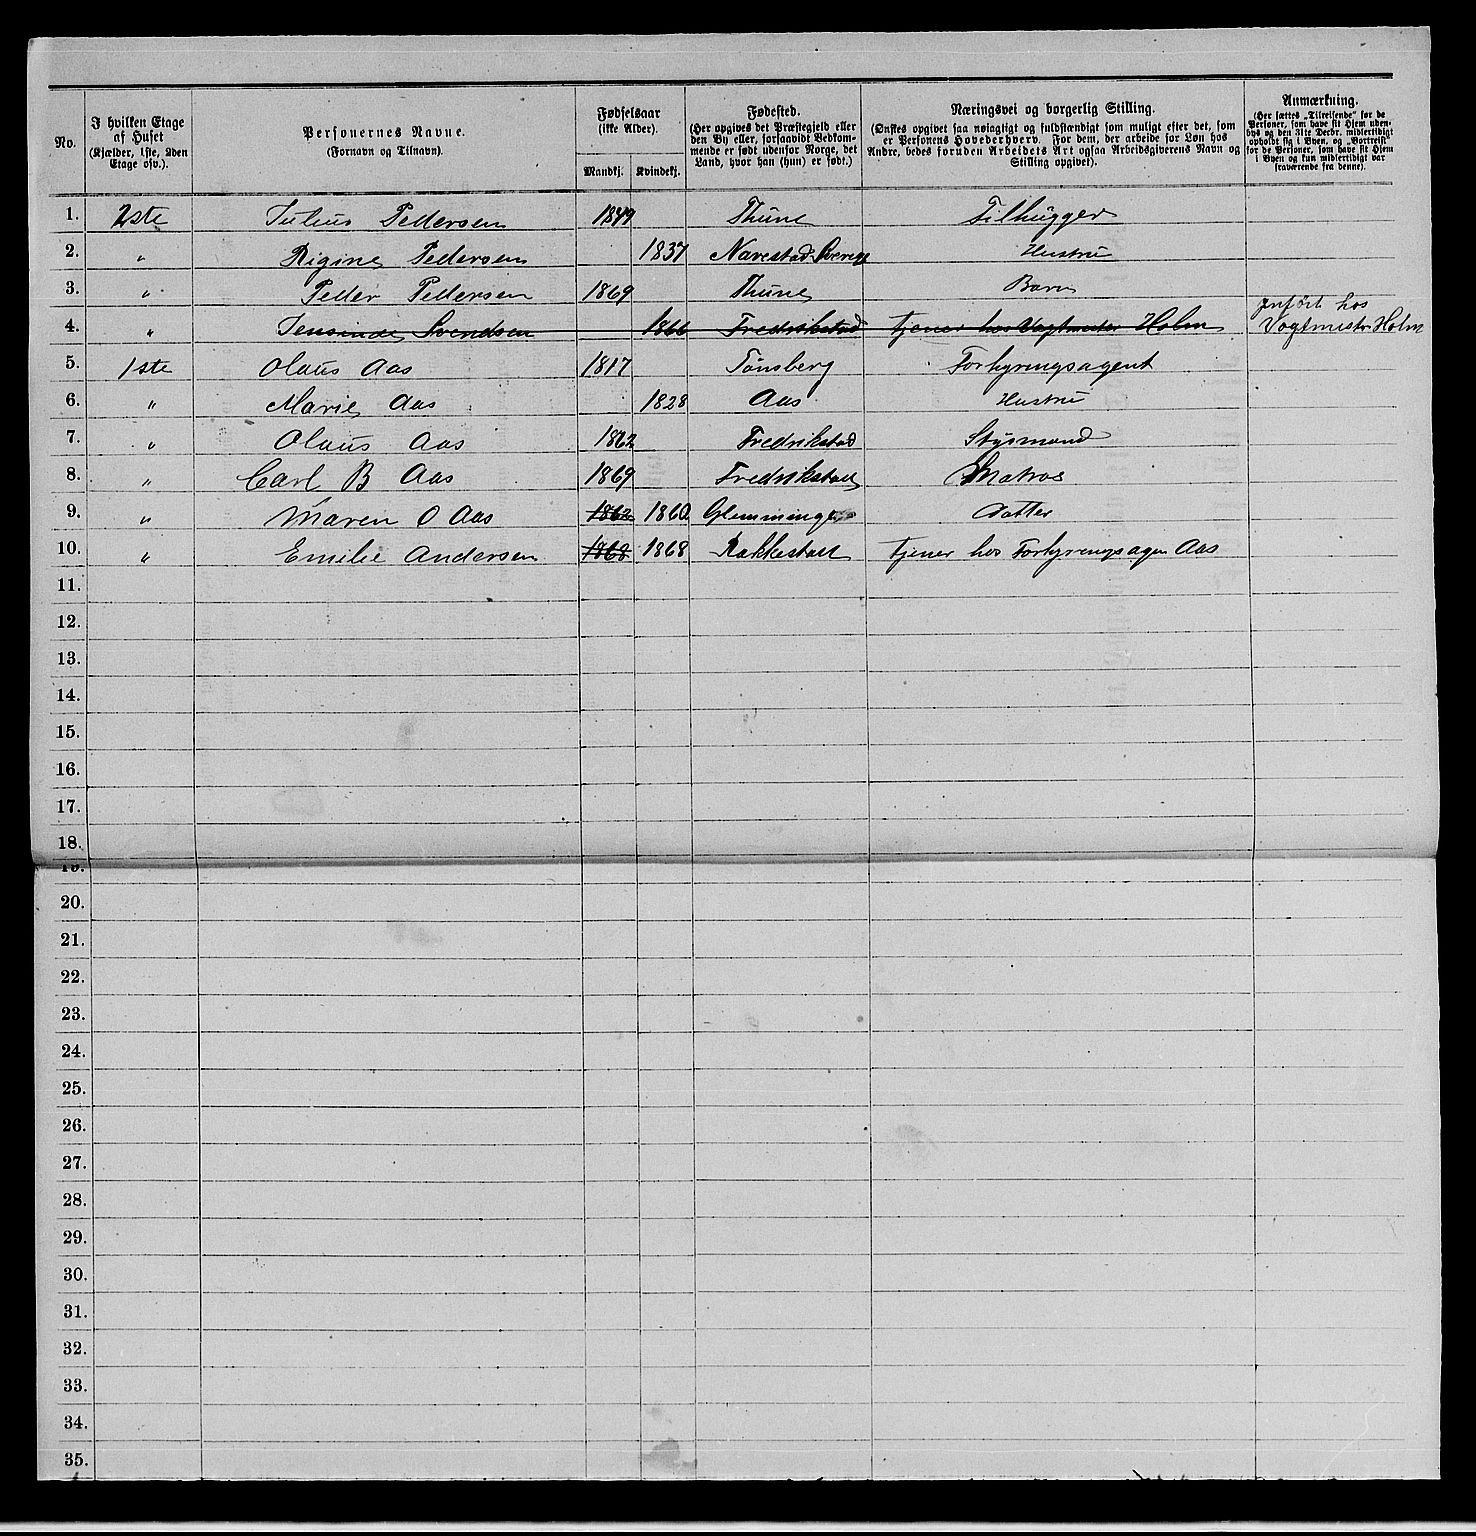 No.
I hvilken Etage af Huset
(Kjælder, 1ste, 2den Etage osv.).
Personernes Navne.
(Fornavn og Tilnavn).
Fødselsaar
(ikke Alder).
Mandkj. Kvindekj.
Fødested.
(Her opgives det Præstegjeld eller
den By eller, forsaavidt Vedkom-
mende er født udenfor Norge, det
Land, hvor han (hun) er født.)
Næringsvei og borgerlig Stilling.
(Ønskes opgivet saa nøiagtigt og fuldstændigt som muligt efter det, som
er Personens Hovederhverv. For dem, der arbeide for Løn hos
Andre, bedes foruden Arbeidets Art ogsaa Arbeidsgiverens Navn og
Stilling opgivet).
Anmærkning.
(Her sættes "Tilreisende" for de
Personer, som have sit Hjem uden-
bys og den 31te Decbr. midlertidigt
opholdt sig i Byen, og "Bortreist"
for de Personer, som have sit Hjem
i Byen og kun midlertidigt var
fraværende fra denne).
1. 2ste Julius Pedersen 1849 Thune Filhugger
2. " Rigine Pedersen 1837 Navestad Sverige Hustru
3. " Peder Pedersen 1869 Thune Barn
4. " Jensine Svendsen 1866 Fredrikstad tjener hos Vagtmester Holm Indført hos
Vagtmestr Holm
5. 1ste Olaus Aas 1817 Tønsberg Forhyringsagent
6. " Marie Aas 1828 Aas Hustru
7. " Olaus Aas 1862 Fredrikstad Styrmand
8. " Carl B Aas 1869 Fredrikstad Matros
9. " Maren O Aas 1862 1860 Glemminge Datter
10. " Emilie Andersen 1868 1868 Rakkestad tjener hos Forhyringsagen Aas
11.
12.
13.
14.
15.
16.
17.
18.
19.
20.
21.
22.
23.
24.
25.
26.
27.
28.
29.
30.
31.
32.
33.
34.
35.